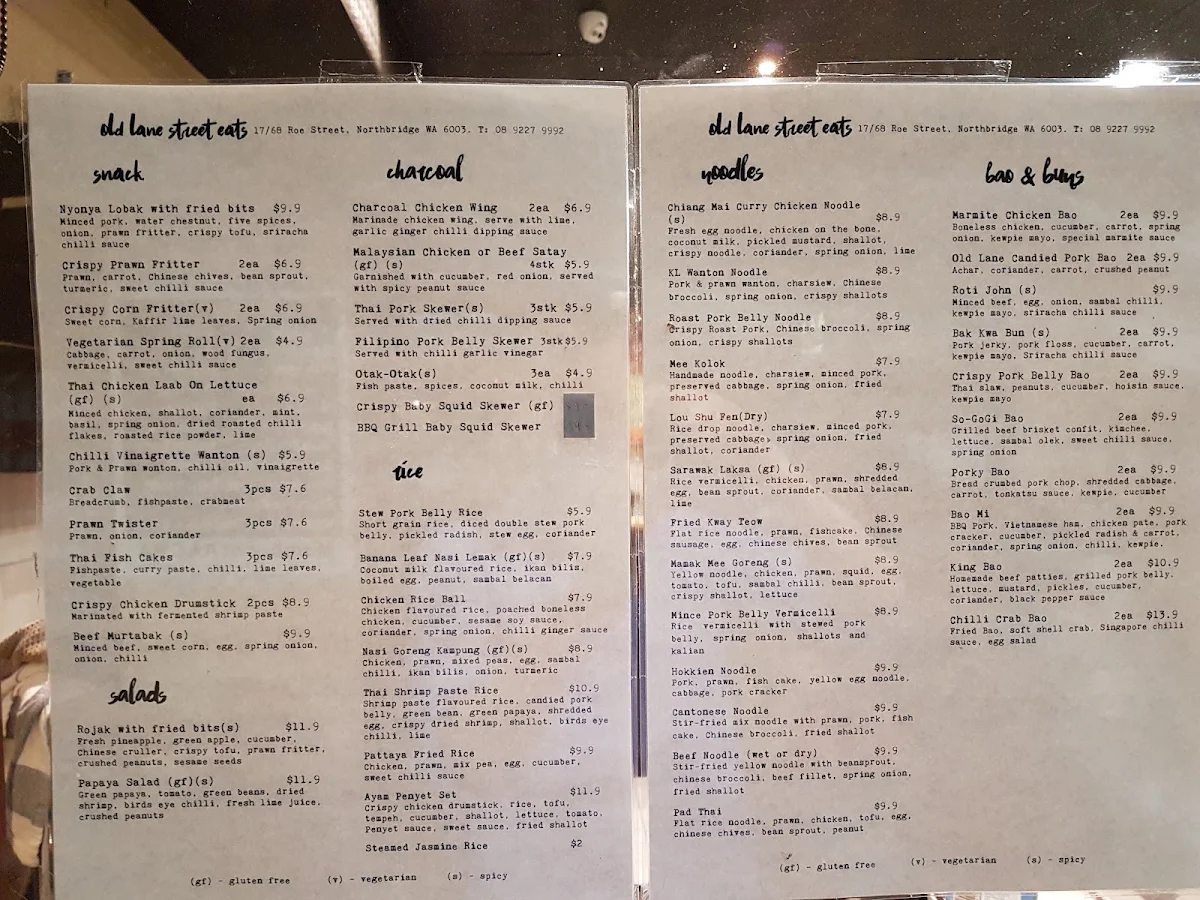 old lane street eats 17/68 Roe Street, Northbridge WA 6003. T: 08 9227 9992
snack
Nyonya Lobak with fried bits $9.9
Minced pork, water chestnut, five spices,
onion, prawn fritter, crispy tofu, sriracha
chilli sauce
Crispy Prawn Fritter 2ea $6.9
Prawn, carrot, Chinese chives, bean sprout,
turmeric, sweet chilli sauce
Crispy Corn Fritter(v) 2ea $6.9
Sweet corn, Kaffir lime leaves, Spring onion
Vegetarian Spring Roll(v) 2ea $4.9
Cabbage, carrot, onion, wood fungus,
vermicelli, sweet chilli sauce
Thai Chicken Laab On Lettuce
(gf) (s) ea $6.9
Minced chicken, shallot, coriander, mint,
basil, spring onion, dried roasted chilli
flakes, roasted rice powder, lime
Chilli Vinaigrette Wanton (s) $5.9
Pork & Prawn wonton, chilli oil, vinaigrette
Crab Claw 3pcs $7.6
Breadcrumb, fishpaste, crabmeat
Prawn Twister 3pcs $7.6
Prawn, onion, coriander
Thai Fish Cakes 3pcs $7.6
Fishpaste, curry paste, chilli, lime leaves,
vegetable
Crispy Chicken Drumstick 2pcs $8.9
Marinated with fermented shrimp paste
Beef Murtabak (s) $9.9
Minced beef, sweet corn, egg, spring onion,
onion, chilli
salads
Rojak with fried bits(s) $11.9
Fresh pineapple, green apple, cucumber,
Chinese cruller, crispy tofu, prawn fritter,
crushed peanuts, sesame seeds
Papaya Salad (gf)(s) $11.9
Green papaya, tomato, green beans, dried
shrimp, birds eye chilli, fresh lime juice,
crushed peanuts
charcoal
Charcoal Chicken Wing 2ea $6.9
Marinade chicken wing, serve with lime,
garlic ginger chilli dipping sauce
Malaysian Chicken or Beef Satay
(gf) (s) 4stk $5.9
Garnished with cucumber, red onion, served
with spicy peanut sauce
Thai Pork Skewer(s) 3stk $5.9
Served with dried chilli dipping sauce
Filipino Pork Belly Skewer 3stk$5.9
Served with chilli garlic vinegar
Otak-Otak(s) 3ea $4.9
Fish paste, spices, coconut milk, chilli
Crispy Baby Squid Skewer (gf)
BBQ Grill Baby Squid Skewer
rice
Stew Pork Belly Rice $5.9
Short grain rice, diced double stew pork
belly, pickled radish, stew egg, coriander
Banana Leaf Nasi Lemak (gf)(s) $7.9
Coconut milk flavoured rice, ikan bilis,
boiled egg, peanut, sambal belacan
Chicken Rice Ball $7.9
Chicken flavoured rice, poached boneless
chicken, cucumber, sesame soy sauce,
coriander, spring onion, chilli ginger sauce
Nasi Goreng Kampung (gf)(s) $8.9
Chicken, prawn, mixed peas, egg, sambal
chilli, ikan bilis, onion, turmeric
Thai Shrimp Paste Rice $10.9
Shrimp paste flavoured rice, candied pork
belly, green bean, green papaya, shredded
egg, crispy dried shrimp, shallot, birds eye
chilli, lime
Pattaya Fried Rice $9.9
Chicken, prawn, mix pea, egg, cucumber,
sweet chilli sauce
Ayam Penyet Set $11.9
Crispy chicken drumstick, rice, tofu,
tempeh, cucumber, shallot, lettuce, tomato,
Penyet sauce, sweet sauce, fried shallot
Steamed Jasmine Rice $2
(gf) - gluten free (v) - vegetarian (s) - spicy
old lane street eats 17/68 Roe Street, Northbridge WA 6003. T: 08 9227 9992
noodles
Chiang Mai Curry Chicken Noodle
(s) $8.9
Fresh egg noodle, chicken on the bone,
coconut milk, pickled mustard, shallot,
crispy noodle, coriander, spring onion, lime
KL Wanton Noodle $8.9
Pork & prawn wanton, charsiew, Chinese
broccoli, spring onion, crispy shallots
Roast Pork Belly Noodle $8.9
Crispy Roast Pork, Chinese broccoli, spring
onion, crispy shallots
Mee Kolok $7.9
Handmade noodle, charsiew, minced pork,
preserved cabbage, spring onion, fried
shallot
Lou Shu Fen(Dry) $7.9
Rice drop noodle, charsiew, minced pork,
preserved cabbage, spring onion, fried
shallot, coriander
Sarawak Laksa (gf) (s) $8.9
Rice vermicelli, chicken, prawn, shredded
egg, bean sprout, coriander, sambal belacan,
lime
Fried Kway Teow $8.9
Flat rice noodle, prawn, fishcake, Chinese
sausage, egg, chinese chives, bean sprout
Mamak Mee Goreng (s) $8.9
Yellow noodle, chicken, prawn, squid, egg,
tomato, tofu, sambal chilli, bean sprout,
crispy shallot, lettuce
Mince Pork Belly Vermicelli $8.9
Rice vermicelli with stewed pork
belly, spring onion, shallots and
kalian
Hokkien Noodle $9.9
Pork, prawn, fish cake, yellow egg noodle,
cabbage, pork cracker
Cantonese Noodle $9.9
Stir-fried mix noodle with prawn, pork, fish
cake, Chinese broccoli, fried shallot
Beef Noodle (wet or dry) $9.9
Stir-fried yellow noodle with beansprout,
chinese broccoli, beef fillet, spring onion,
fried shallot
Pad Thai $9.9
Flat rice noodle, prawn, chicken, tofu, egg,
chinese chives, bean sprout, peanut
bao & buns
Marmite Chicken Bao 2ea $9.9
Boneless chicken, cucumber, carrot, spring
onion, kewpie mayo, special marmite sauce
Old Lane Candied Pork Bao 2ea $9.9
Achar, coriander, carrot, crushed peanut
Roti John (s) $9.9
Minced beef, egg, onion, sambal chilli,
kewpie mayo, sriracha chilli sauce
Bak Kwa Bun (s) $9.9
Pork jerky, pork floss, cucumber, carrot,
kewpie mayo, Sriracha chilli sauce
Crispy Pork Belly Bao 2ea $9.9
Thai slaw, peanuts, cucumber, hoisin sauce,
kewpie mayo
So-GoGi Bao 2ea $9.9
Grilled beef brisket confit, kimchee,
lettuce, sambal olek, sweet chilli sauce,
spring onion
Porky Bao 2ea $9.9
Bread crumbed pork chop, shredded cabbage,
carrot, tonkatsu sauce, kewpie, cucumber
Bao Mi 2ea $9.9
BBQ Pork, Vietnamese ham, chicken pate, pork
cracker, cucumber, pickled radish & carrot,
coriander, spring onion, chilli, kewpie.
King Bao 2ea $10.9
Homemade beef patties, grilled pork belly,
lettuce, mustard, pickles, cucumber,
coriander, black pepper sauce
Chilli Crab Bao 2ea $13.9
Fried Bao, soft shell crab, Singapore chilli
sauce, egg salad
(gf) - gluten free (v) - vegetarian (s) - spicy